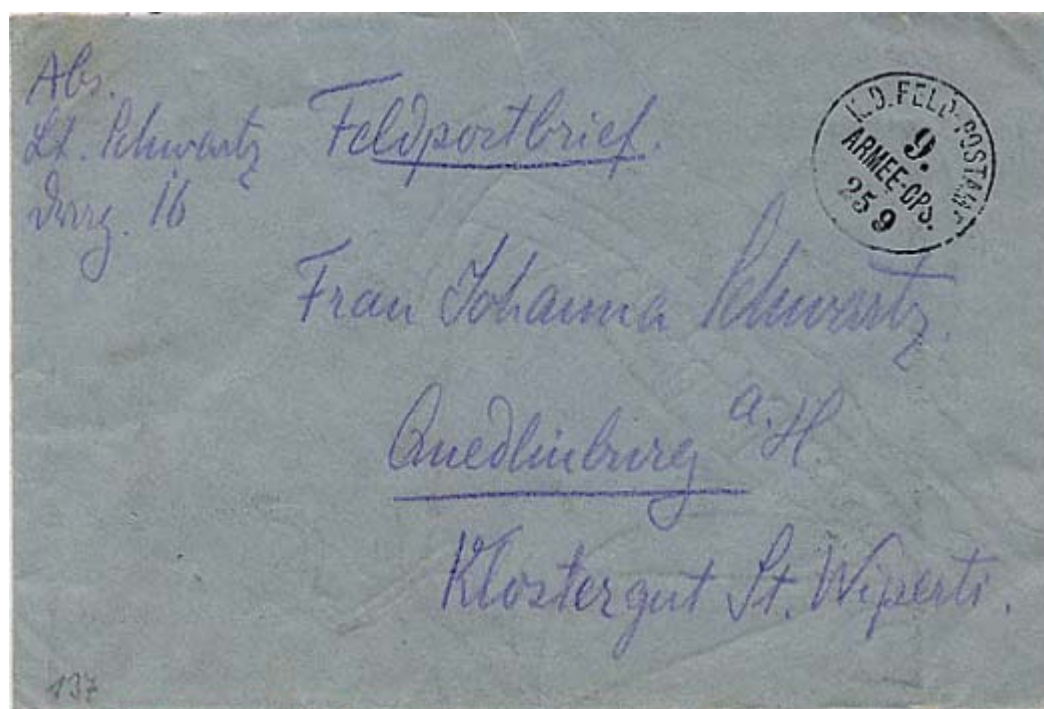 Abs.
Lt. Schwartz
Drag. 16
Feldpostbrief.
K.D. FELD-POSTAMT
9.
ARMEE-CPS.
25 9
Frau Johanna Schwartz.
Quedlinburg a. H.
Klostergut St. Wiperti.
137